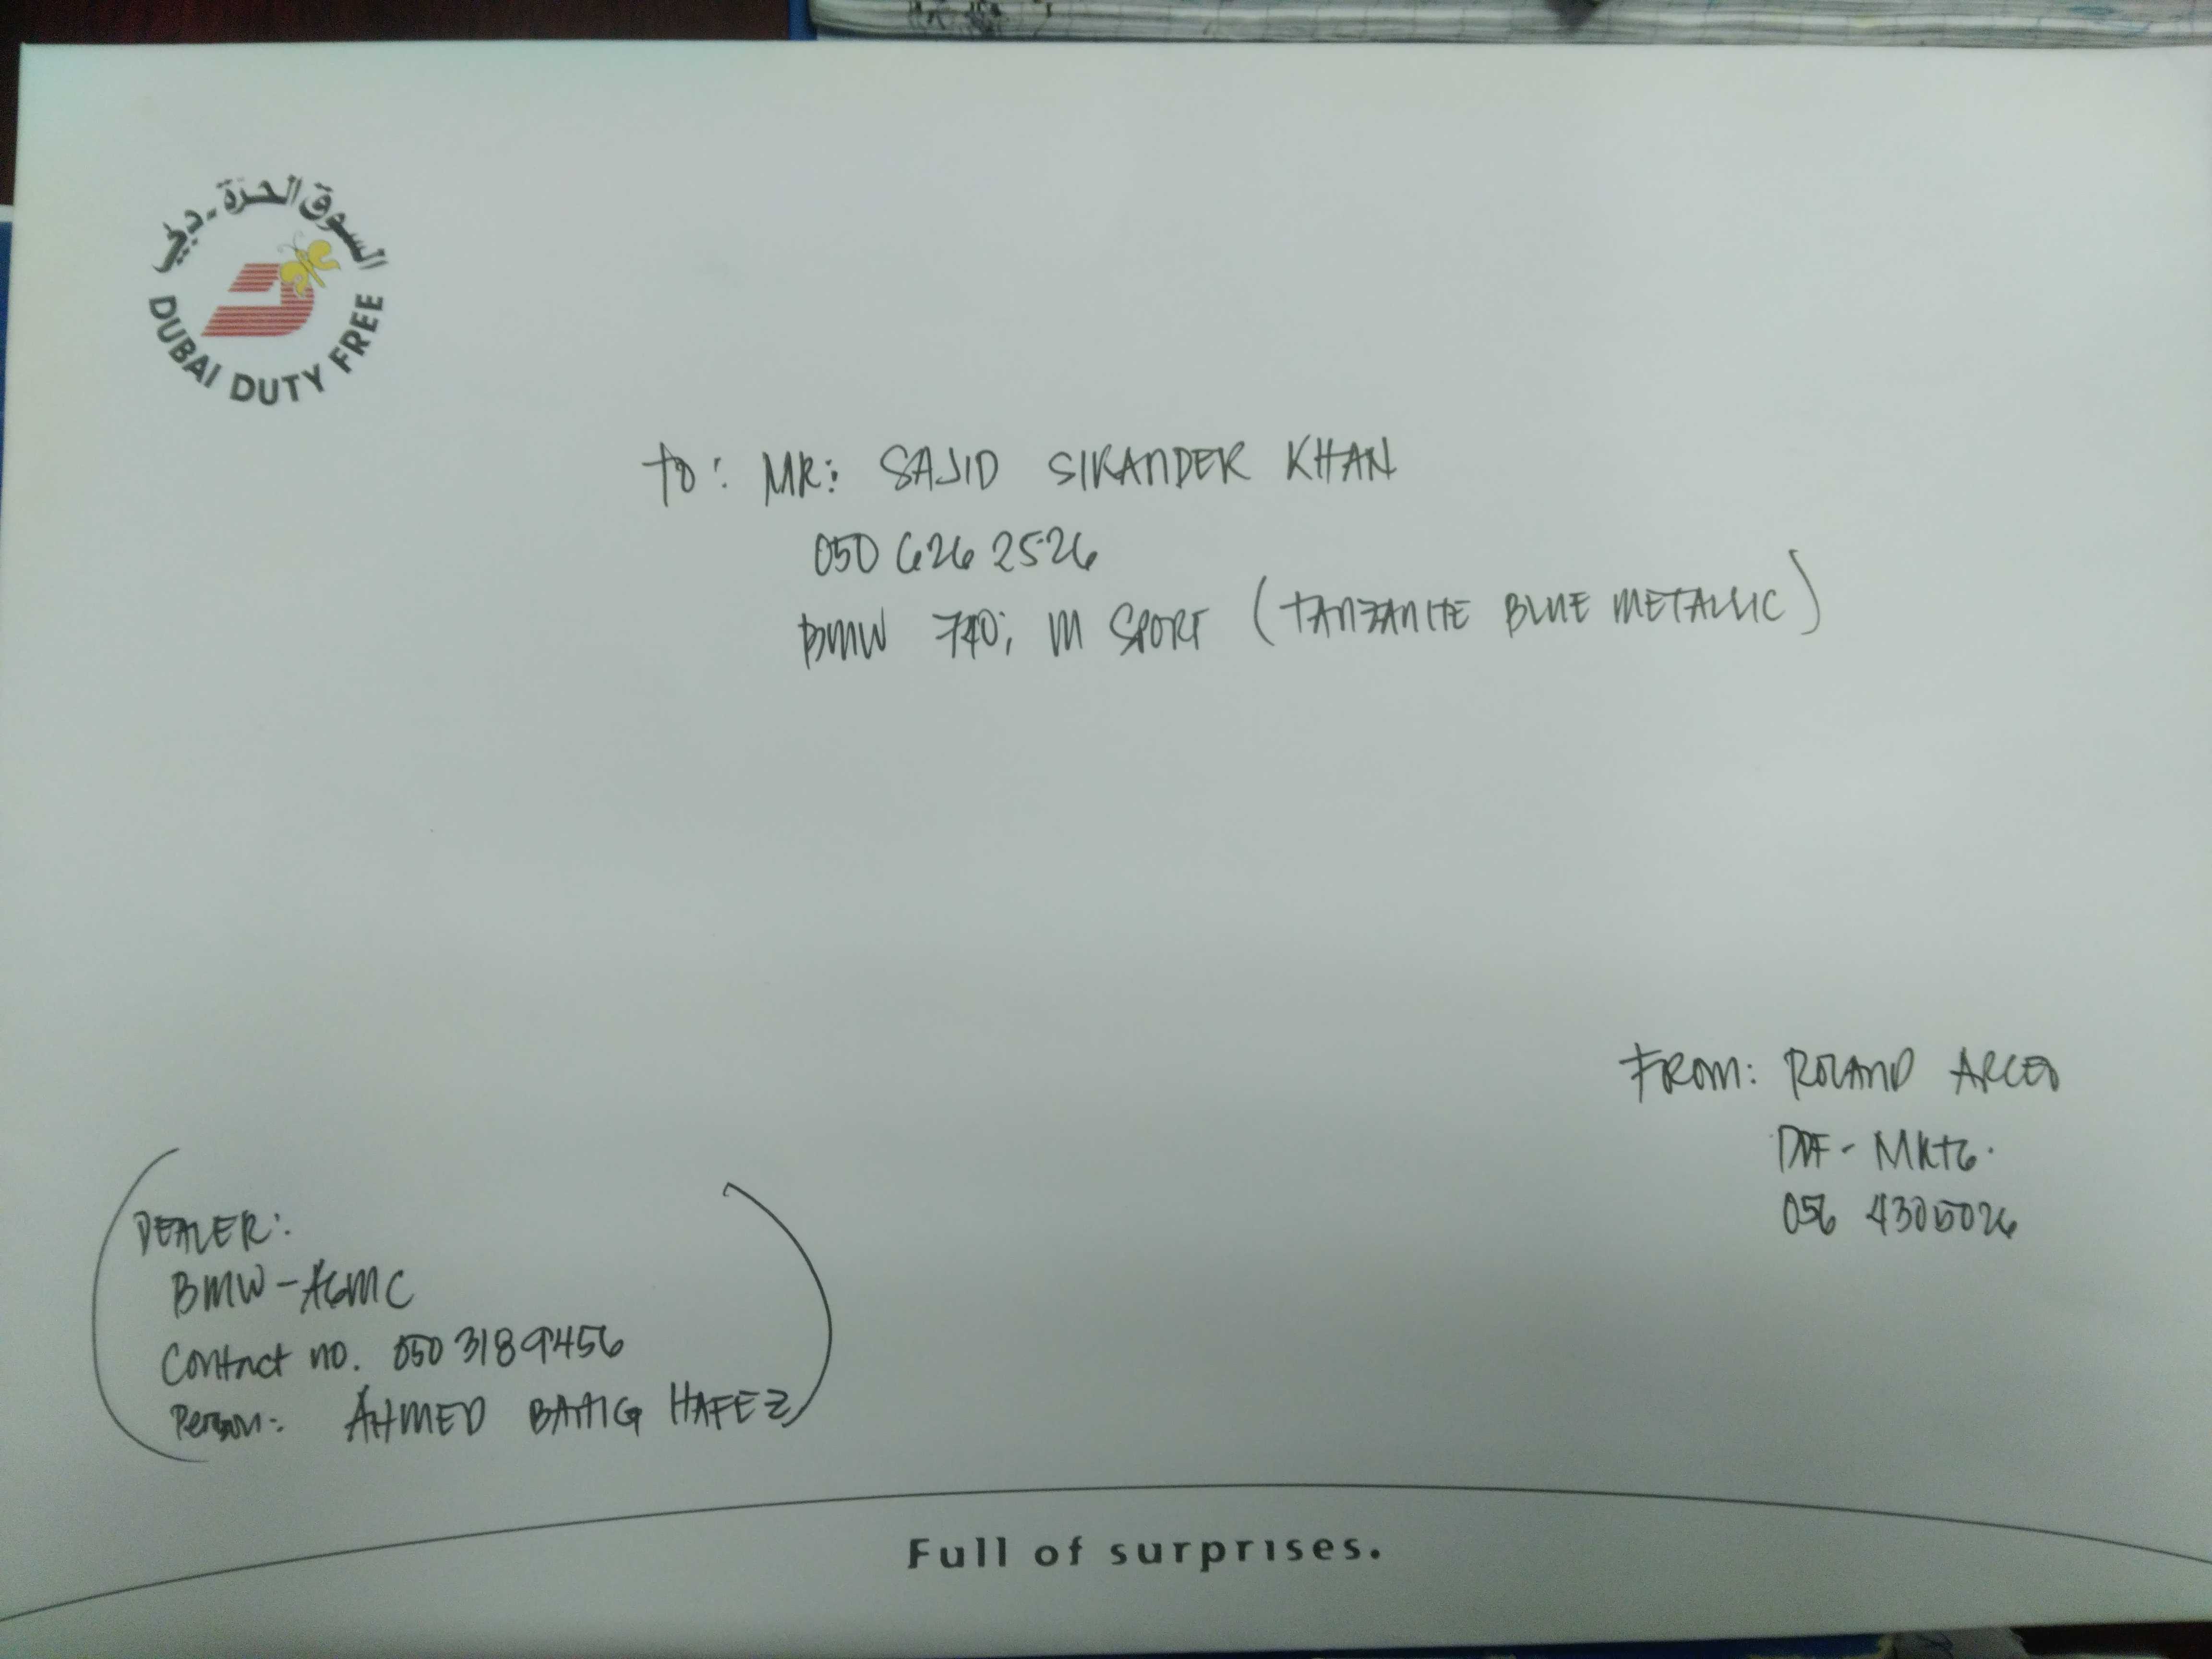 السوق الحرة - دبي
DUBAI DUTY FREE
To: MR: SAJID SIKANDER KHAN
050 626 2526
BMW 740i M SPORT (TANZANITE BLUE METALLIC)
FROM: ROLAND ARCEO
DDF - MKTG.
056 4305026
DEALER:
BMW - AGMC
Contact no. 050 3189456
Person: AHMED BAAIG HAFEZ
Full of surprises.